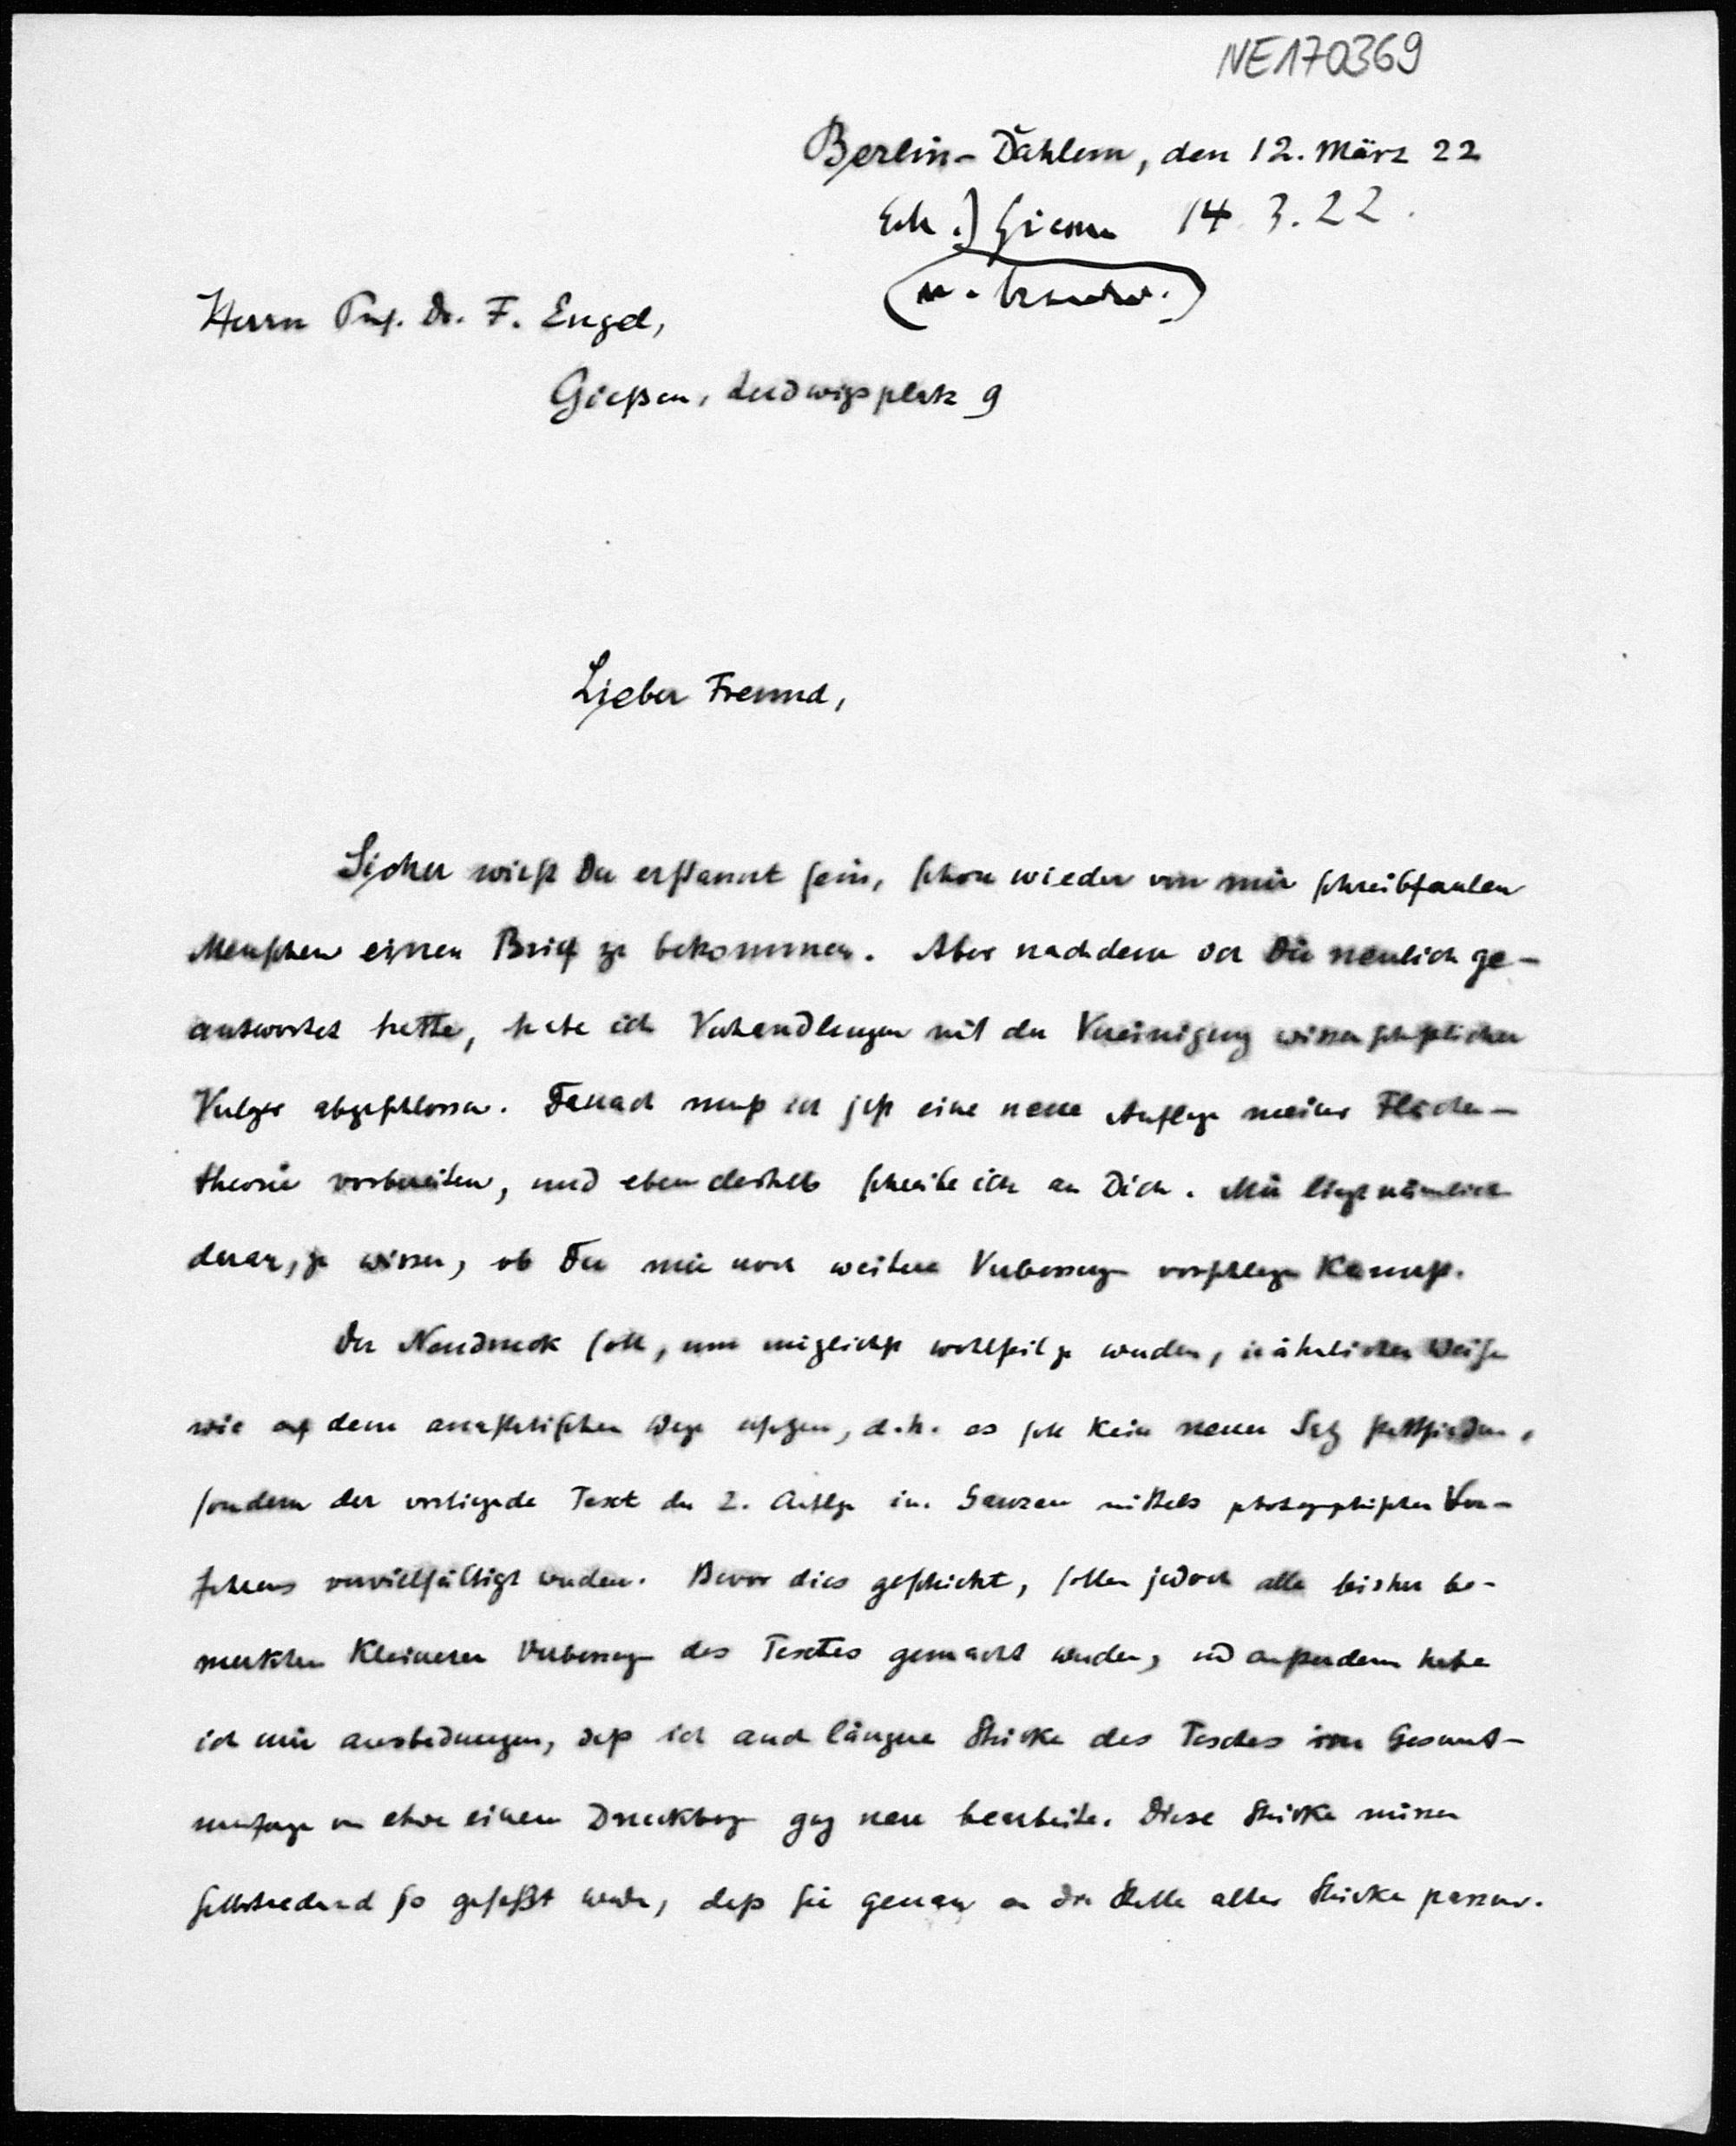 NE170369
Berlin-Dahlem, den 12. März 22
Erh.) Giessen 14. 3. 22.
Herrn Prof. Dr. F. Engel,
Gießen, Ludwigsplatz 9
Lieber Freund,
Sicher wirst Du erstaunt sein, schon wieder von mir schreibfaulen
Menschen einen Brief zu bekommen. Aber nachdem ich Dir neulich ge-
antwortet hatte, habe ich Verhandlungen mit der Vereinigung wissenschaftlicher
Verleger abgeschlossen. Danach muß ich jetzt eine neue Auflage meiner Flächen-
theorie vorbereiten, und eben deshalb schreibe ich an Dich. Mir liegt nämlich
daran, zu wissen, ob Du mir noch weitere Verbesserungen vorschlagen kannst.
Der Neudruck soll, um möglichst wohlfeil zu werden, in ähnlicher Weise
wie auf dem anastatischen Wege erfolgen, d.h. es soll kein neuer Satz stattfinden,
sondern der vorliegende Text der 2. Auflage im Ganzen mittels photographischen Ver-
fahrens vervielfältigt werden. Bevor dies geschieht, sollen jedoch alle bisher be-
merkten kleineren Verbesserungen des Textes gemacht werden, und außerdem habe
ich mir ausbedungen, daß ich auch längere Stücke des Textes im Gesamt-
umfange von etwa einem Druckbogen ganz neu bearbeite. Diese Stücke müssen
selbstredend so gefaßt werden, daß sie genau an die Stelle alter Stücke passen.